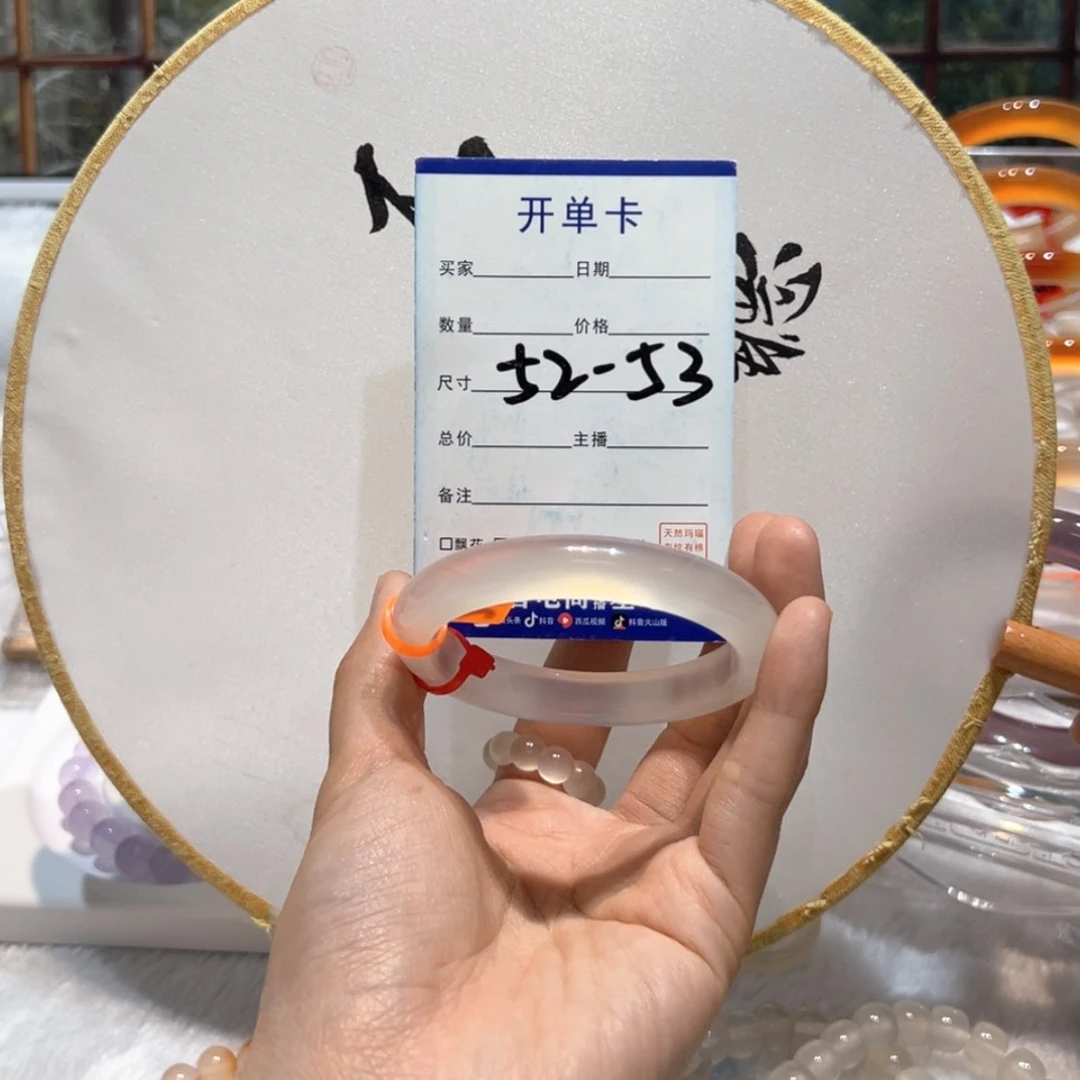 开单卡
买家 日期
数量 价格
尺寸 52-53
总价 主播
备注
飘花
天然玛瑙
有纹有棉
头条 抖音 西瓜视频 抖音火山版